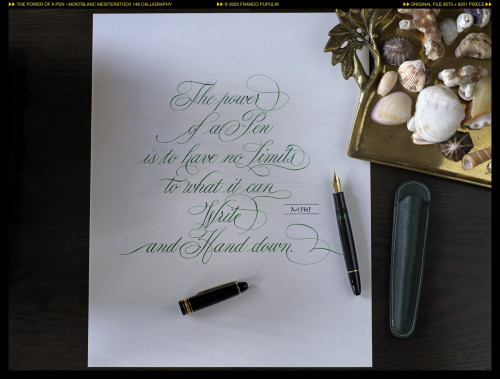 THE POWER OF A PEN • MONTBLANC MEISTERSTÜCK 146 CALLIGRAPHY
© 2023 FRANCO PUPULIN
ORIGINAL FILE 8273 × 6201 PIXELS
The power
of a Pen
is to have no Limits
to what it can
Write
and Hand down.